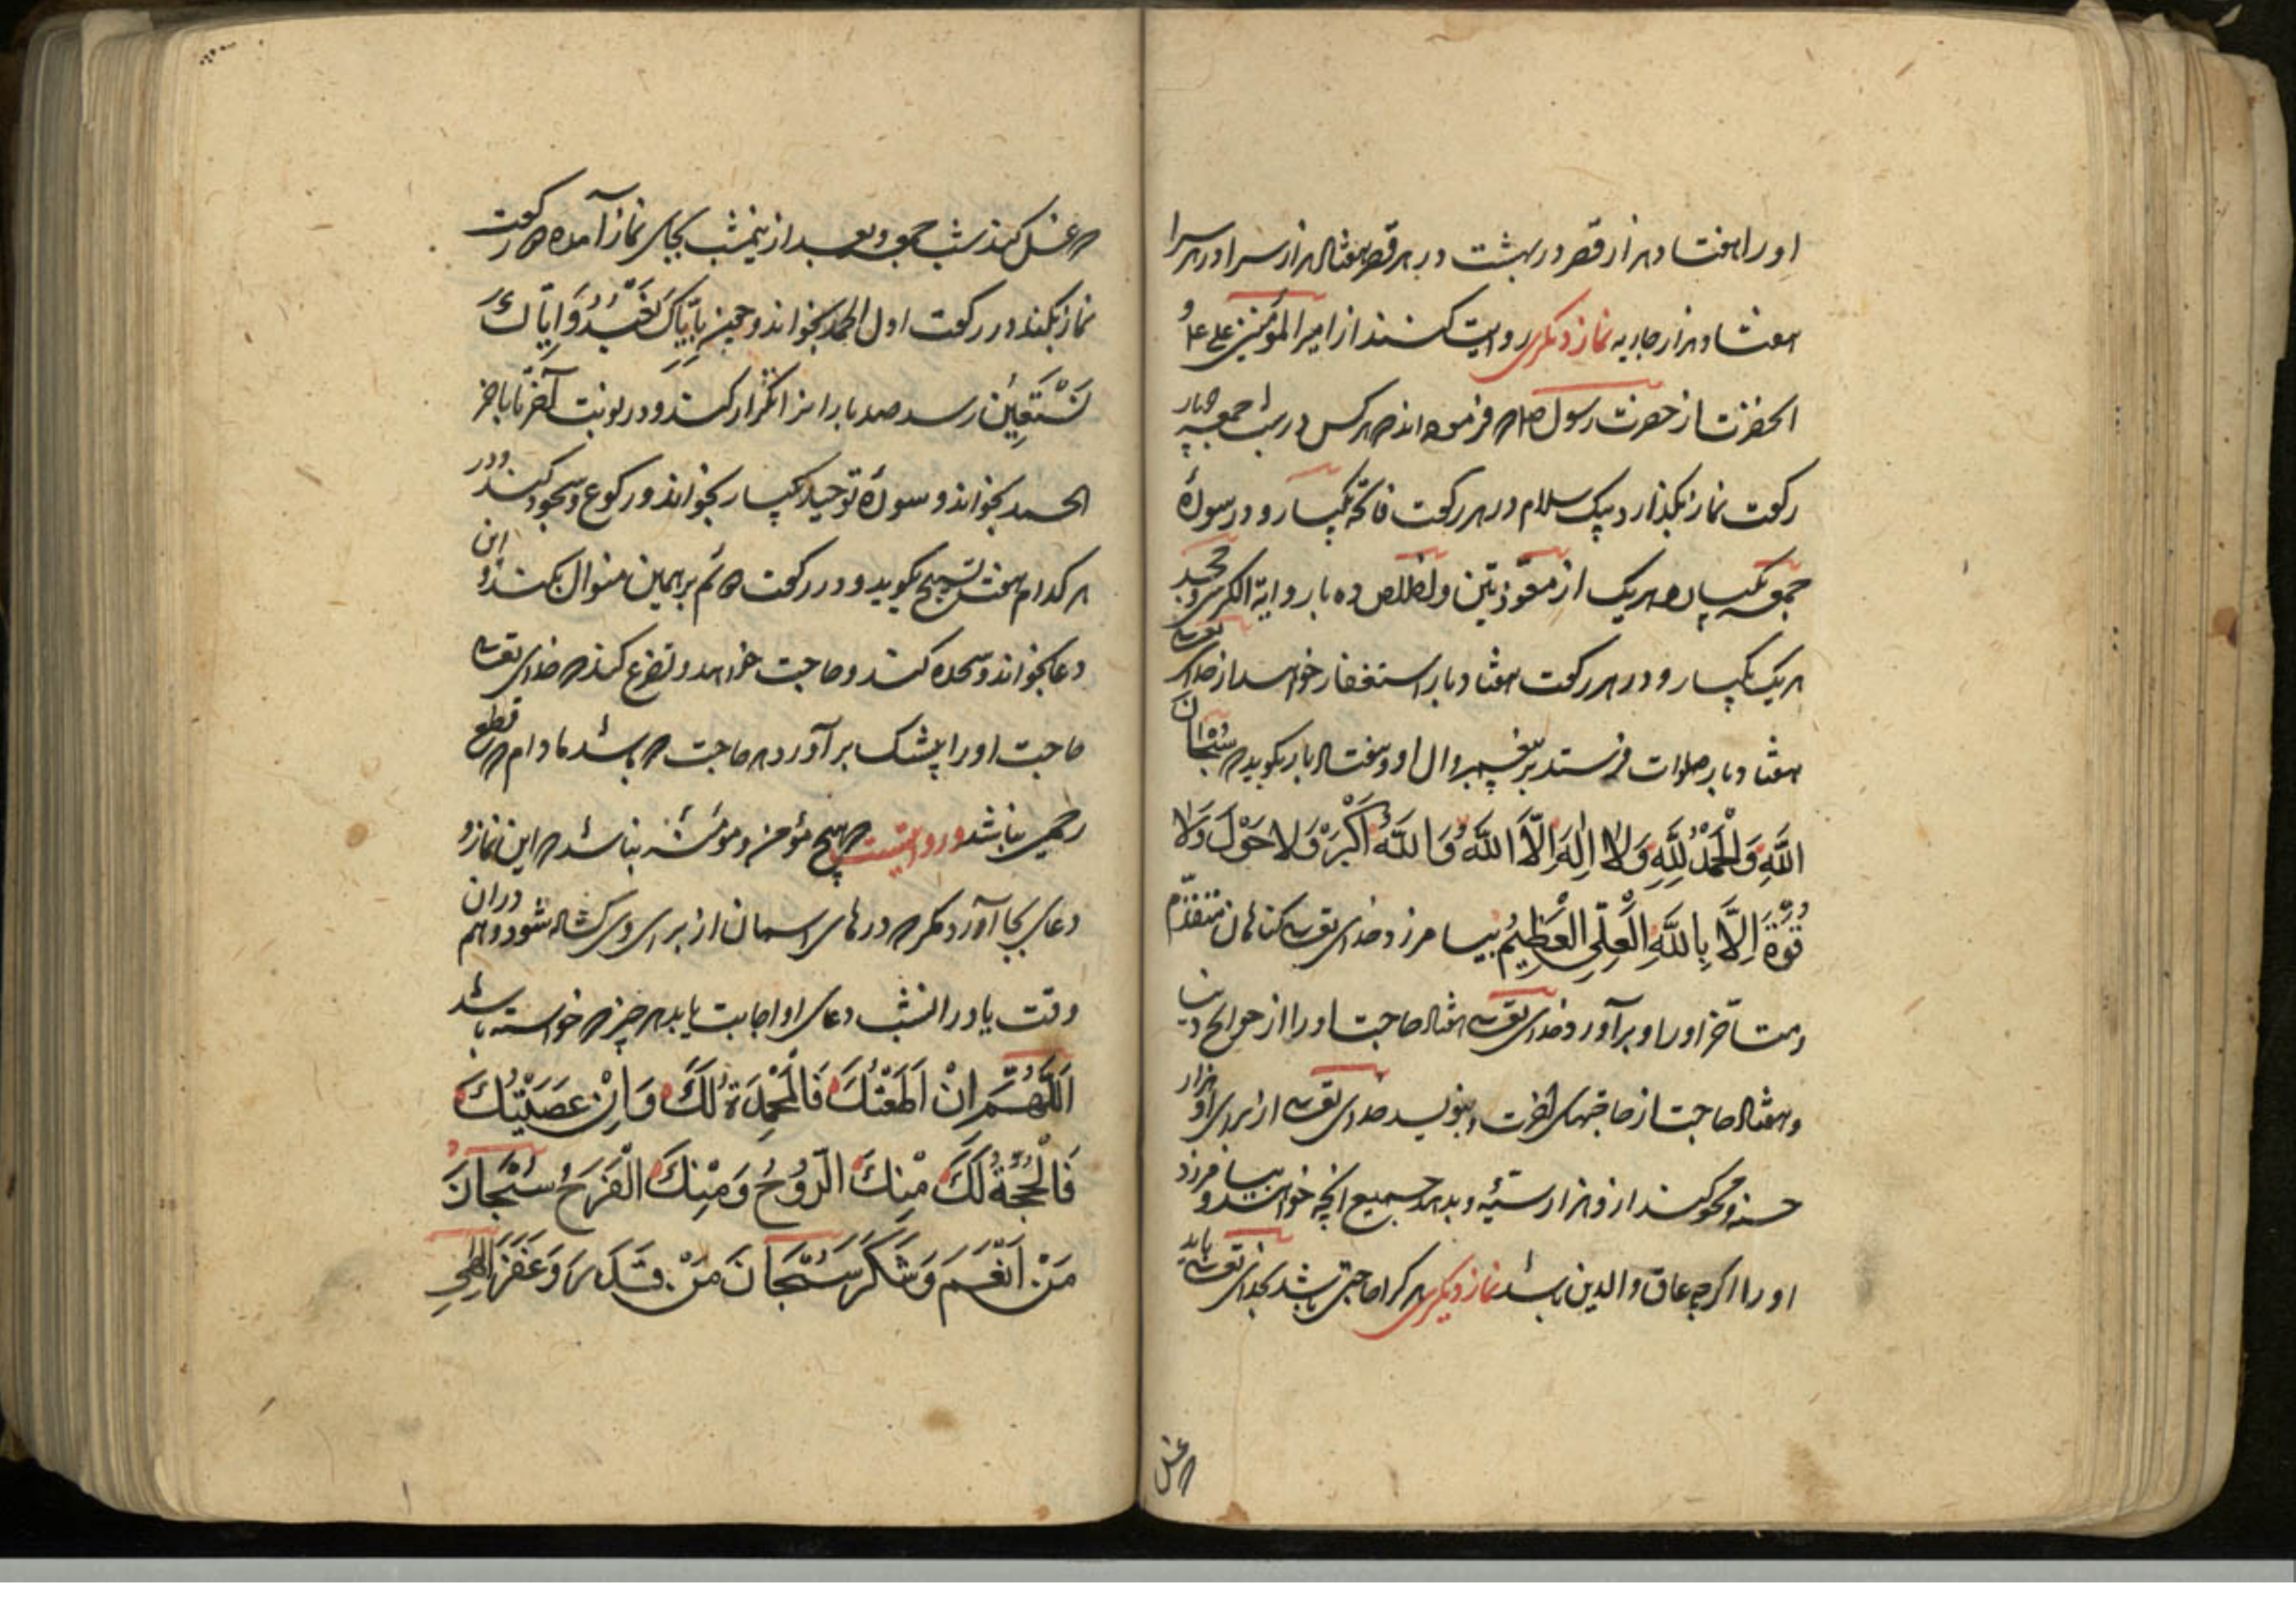 او را هفتاد هزار قصر در بهشت و در هر قصر هفتاد هزار سرا و در هر سرا
هفتاد هزار جاریه نماز دیگر روایت کنند از امیر المؤمنین علی ع و
آنحضرت از حضرت رسول ص که فرموده‌اند که هر کس در شب جمعه چهار
رکعت نماز بگذارد بیک سلام در هر رکعت فاتحه یکبار و در سورهٔ
جمعه یکبار و هر یک از معوّذتین و اخلاص ده بار و آیة الکرسی و جحد
هر یک یکبار و در هر رکعت هفتاد بار استغفار خواهد از خدای تعالی
هفتاد بار صلوات فرستد بر پیغمبر و آل او و هفتاد بار بگوید که سُبْحَانَ
اللَّهِ وَالْحَمْدُ لِلَّهِ وَلَا إِلَهَ إِلَّا اللَّهُ وَاللَّهُ أَكْبَرُ وَلَا حَوْلَ وَلَا
قُوَّةَ إِلَّا بِاللَّهِ الْعَلِيِّ الْعَظِيمِ بیامرزد خدای تعالی گناهان متقدّم
و متأخر او را و برآورد خدای تعالی هفتاد حاجت او را از حوائج دنیا
و هفتاد حاجت از حاجتهای آخرت و بنویسد خدای تعالی از برای او هزار
حسنه و محو کند از او هزار سیّئه و بدهد جمیع آنچه خواهد و بیامرزد
او را اگرچه عاق والدین باشد نماز دیگر هر کرا حاجتی باشد بخدای تعالی باید
که غسل
که غسل کند شب جمعه و بعد از نیمشب بجای نماز آمده دو رکعت
نماز بکند در رکعت اول الحمد بخواند و چون بِإِيَّاكَ نَعْبُدُ وَإِيَّاكَ
نَسْتَعِينُ رسد صد بار این را تکرار کند و در نوبت آخر تا بآخر
الحمد بخواند و سورهٔ توحید یکبار بخواند و رکوع و سجود کند و در
هر کدام هفت تسبیح بگوید و در رکعت دوم بر همین منوال بکند و این
دعا بخواند و سجده کند و حاجت خواهد و تضرع کند که خدای تعالی
حاجت او را بیشک برآورد هر حاجت که باشد مادام که قطع
رحمی نباشد و روایتست که هیچ مؤمن و مؤمنه نباشد که این نماز و
دعای بجا آورد مگر که درهای آسمان از برای وی گشاده شود و هم در آن
وقت یا در آنشب دعای او اجابت یابد هر چیز که خواسته باشد
اَللَّهُمَّ إِنْ أَطَعْتُكَ فَالْمَحْمِدَةُ لَكَ وَإِنْ عَصَيْتُكَ
فَالْحُجَّةُ لَكَ مِنْكَ الرَّوْحُ وَمِنْكَ الْفَرَجُ سُبْحَانَ
مَنْ أَنْعَمَ وَشَكَرَ سُبْحَانَ مَنْ قَدَرَ وَغَفَرَ اللهی